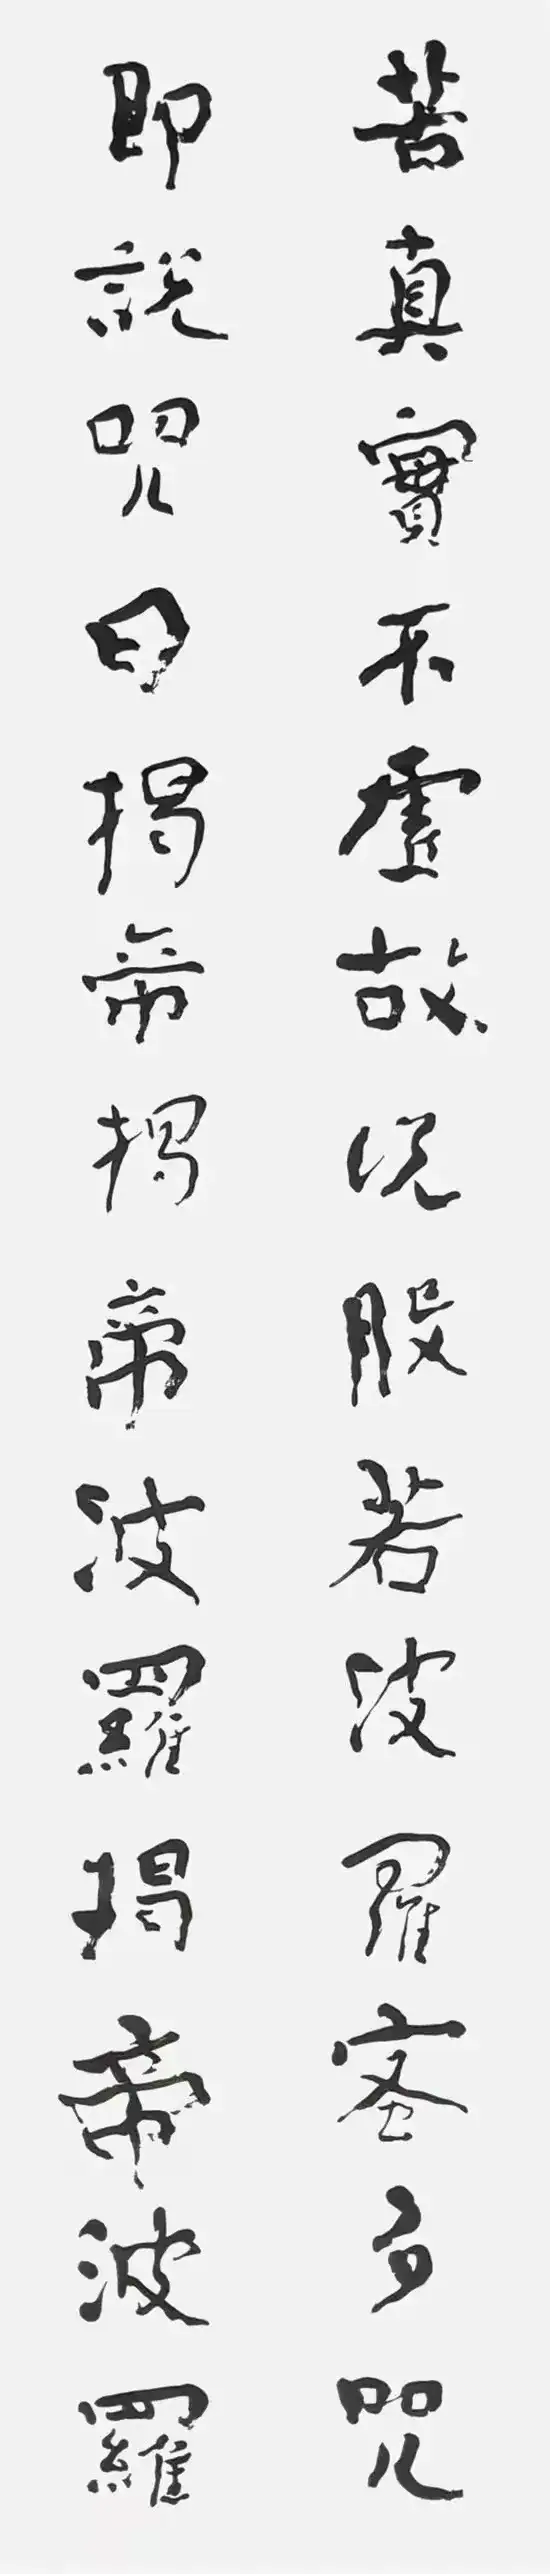 苦真實不虛故说般若波羅蜜多咒
即說咒曰揭帝揭帝波羅揭帝波羅